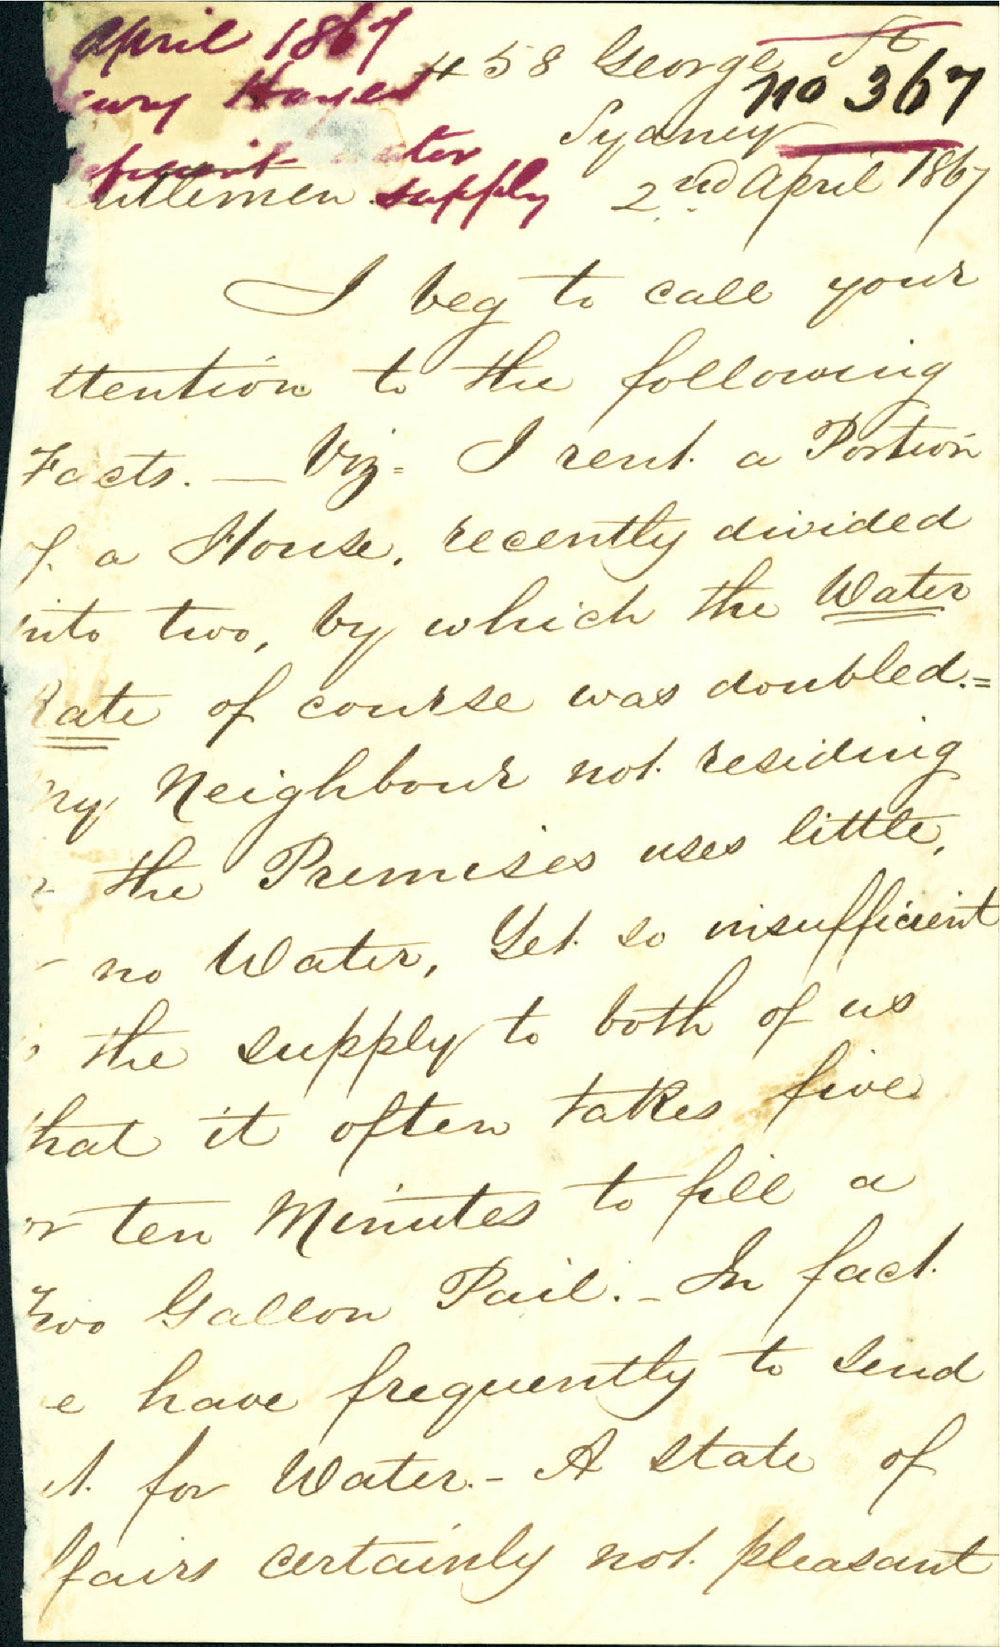 April 1867
458 George St
no 367
Hayes
Sydney
supply
2nd April 1867
I beg to call your
ttention to the following
Facts. — Viz- I rent a Portion
a House, recently divided
into two, by which the Water
Rate of course was doubled.=
my Neighbour not residing
the Premises uses little,
no Water, Yet so insufficient
the supply to both of us
that it often takes five
or ten Minutes to fill a
Two Gallon Pail. - In fact
e have frequently to send
t for Water. - A state of
ffairs certainly not pleasant